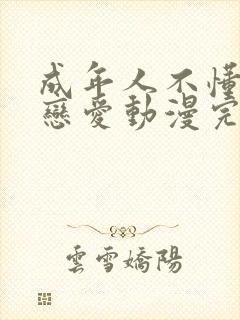 成年人不懂
戀愛動漫完
雲雪嬌陽